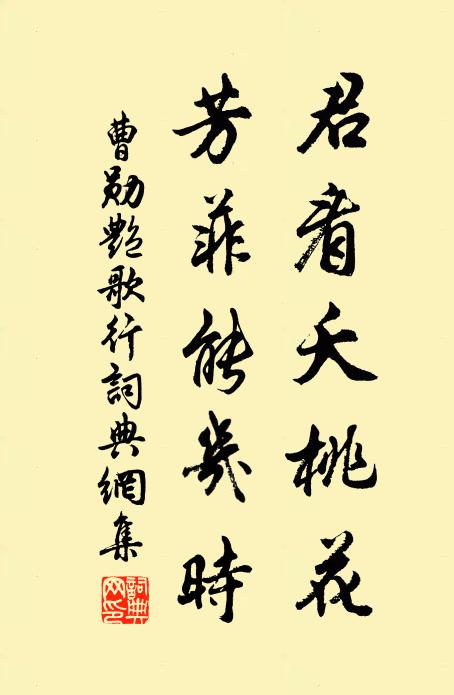 君看夭桃花
芳菲能幾時
曹勛艷歌行詞典網集
詞典网印